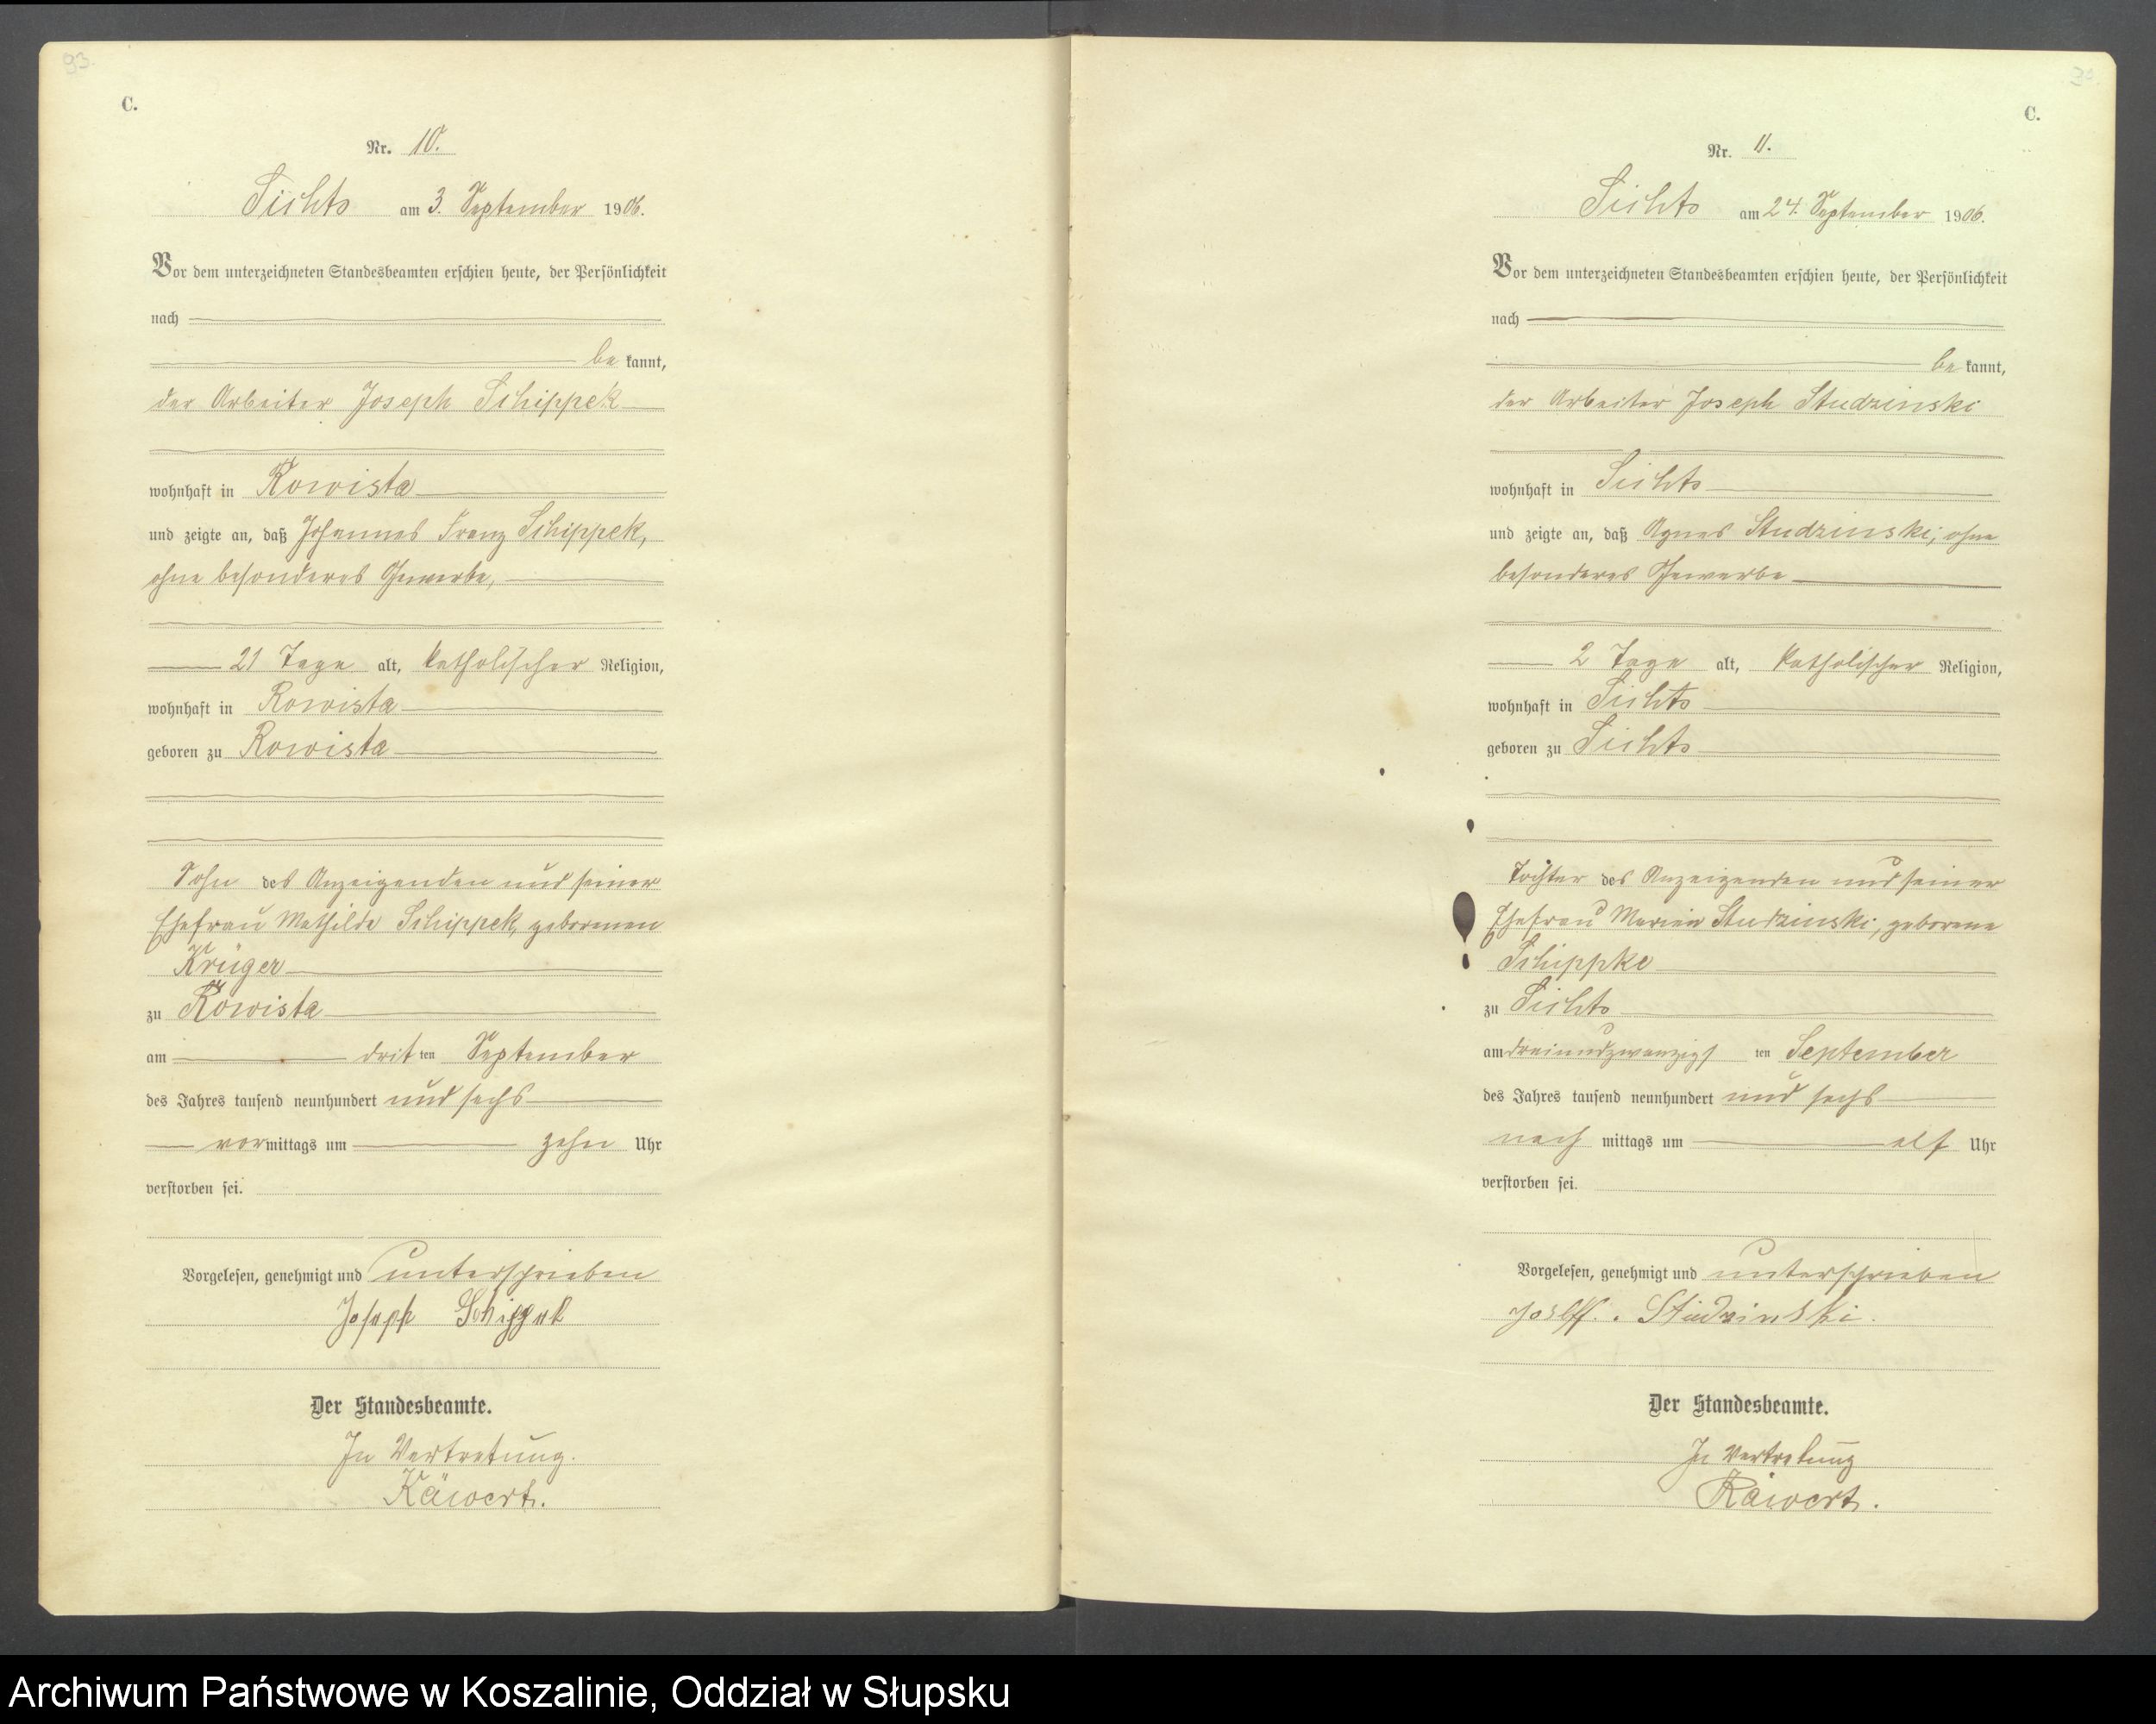 93.
C.
Nr. 10.
Sichts am 3. September 1906.
Vor dem unterzeichneten Standesbeamten erschien heute, der Persönlichkeit
nach
be kannt,
der Arbeiter Joseph Schippek
wohnhaft in Rowista
und zeigte an, daß Johannes Franz Schippek,
ohne besonderes Gewerbe,
21 Tage alt, katholischer Religion,
wohnhaft in Rowista
geboren zu Rowista
Sohn des Anzeigenden und seiner
Ehefrau Mathilde Schippek, geborenen
Krüger
zu Rowista
am dritten September
des Jahres tausend neunhundert und sechs
vormittags um zehn Uhr
verstorben sei.
Vorgelesen, genehmigt und unterschrieben
Joseph Schippek
Der Standesbeamte.
In Vertretung.
Käwert.
C.
Nr. 11.
Sichts am 24. September 1906.
Vor dem unterzeichneten Standesbeamten erschien heute, der Persönlichkeit
nach
be kannt,
der Arbeiter Joseph Studzinski
wohnhaft in Sichts
und zeigte an, daß Agnes Studzinski, ohne
besonderes Gewerbe
2 Tage alt, katholischer Religion,
wohnhaft in Sichts
geboren zu Sichts
Tochter des Anzeigenden und seiner
Ehefrau Marian Studzinski, geborene
Schippke
zu Sichts
am dreiundzwanzigsten September
des Jahres tausend neunhundert und sechs
nach mittags um elf Uhr
verstorben sei.
Vorgelesen, genehmigt und unterschrieben
Studzinski.
Der Standesbeamte.
In Vertretung
Käwert.
Archiwum Państwowe w Koszalinie, Oddział w Słupsku